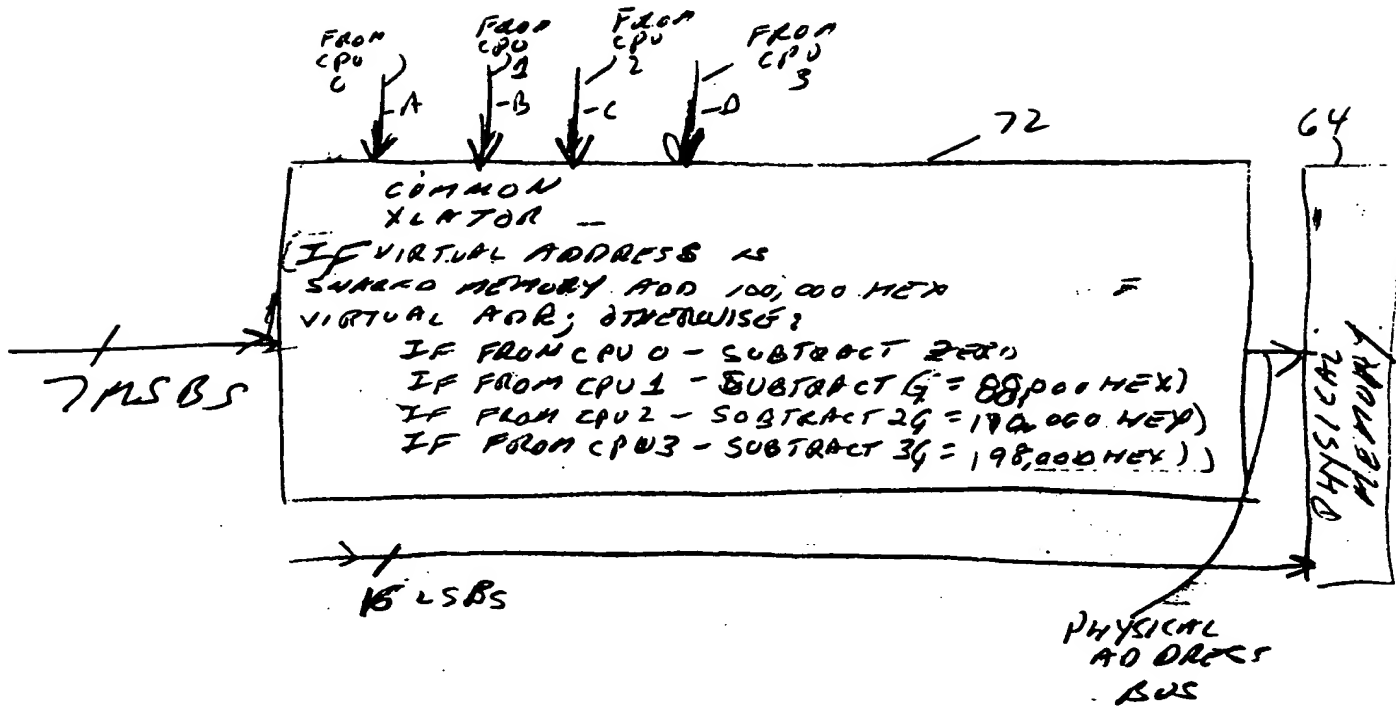 FROM
CPU
0
FROM
CPU
1
FROM
CPU
2
FROM
CPU
3
A
B
C
D
72
64
COMMON
XLATOR —
(IF VIRTUAL ADDRESS IS
SHARED MEMORY ADD 100,000 HEX =
VIRTUAL ADR; OTHERWISE:
IF FROM CPU 0 - SUBTRACT ZERO
IF FROM CPU 1 - SUBTRACT G = 88,000 HEX)
IF FROM CPU2 - SUBTRACT 2G = 110,000 HEX)
IF FROM CPU3 - SUBTRACT 3G = 198,000 HEX))
7 MSBS
PHYSICAL
MEMORY
LSBS
PHYSICAL
ADDRESS
BUS